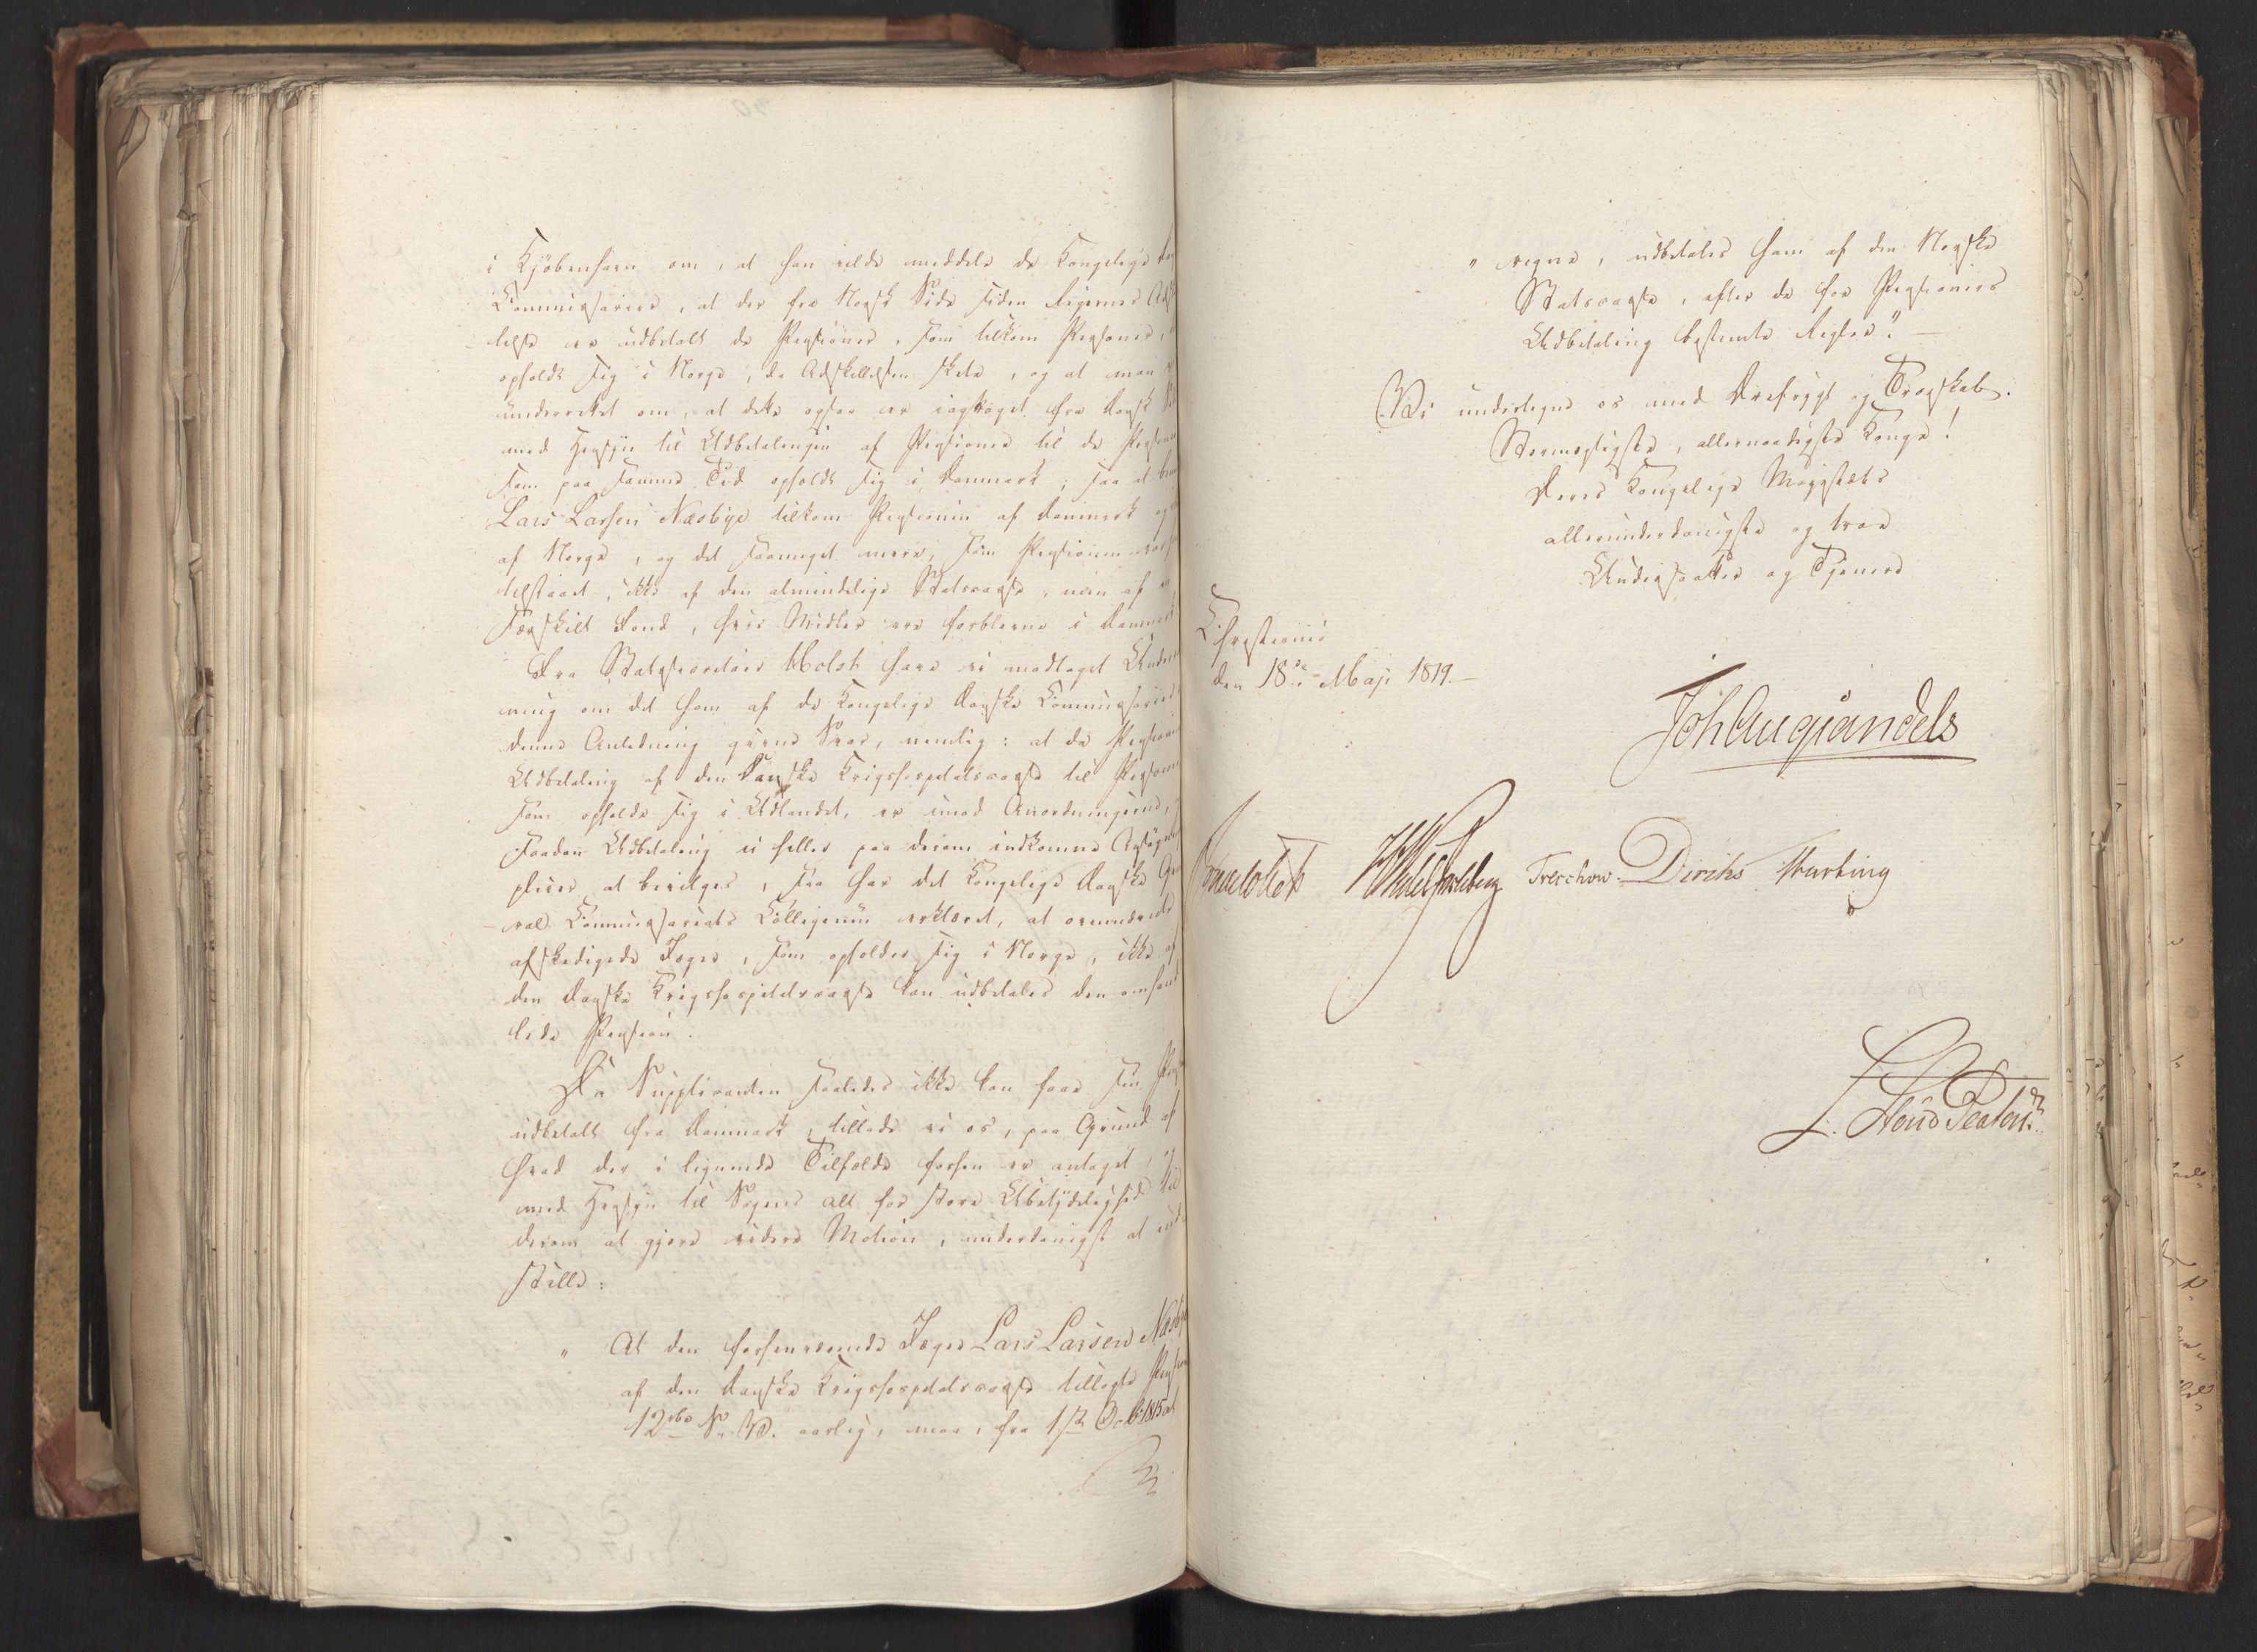 i Kjöbenhavn om, at han vilde meddele de Kongelige
Commissarier, at der fra Norsk Side siden Rigernes
telse er udbetalt de Pensioner, som tilkom Personer,
opholdt sig i Norge, da Adskillelsen skete, og at man
underrettet om, at dette ogsaa er iagttaget fra Dansk
med Hensyn til Udbetalingen af Pensioner til de
som paa samme Tid opholdt sig i Danmark; saa at
Lars Larsen Næsbye tilkom Pensionen af Danmark og
af Norge, og det saameget mere, som Pensionen
tilstaaet, ikke af den almindelige Statscasse, men af
særskilt Fond, hvis Midler ere forblevne i Danmark
Fra Statssecretair Holst have vi modtaget
ning om det ham af de Kongelige Danske Commissarier
denne Anledning givne Svar, nemlig: at da Pensions
Udbetaling af den Danske Krigshospitalscasse til
som opholde sig i Udlandet, er imod Anordningerne,
saadan Udbetaling ei heller paa derom indkomne
pleier at bevilges, saa har det Kongelige Danske
ral Commissariats Collegium erklæret, at ovennævnte
afskedigede Jæger, som opholder sig i Norge, ikke af
den Danske Krigshospitalscasse kan udbetales den omhand
lede Pension.
Da Supplicanten saaledes ikke kan faae sin
udbetalt fra Danmark, tillade vi os, paa Grund af
hvad der i lignende Tilfælde forhen er antaget, og
med Hensyn til Sagens alt for store Ubetydelighed til
derom at gjøre videre Motion, underdanigst at ind
stille:
" At den forhenværende Jæger Lars Larsen Næsbye
af den Danske Krigshospitalscasse tillagte
12 rbd S. V. aarlig, maa, fra 1ste 1815 at
" regne, udbetales ham af den Norske
Statscasse, efter de for Pensioners
Udbetaling bestemte Regler." —
Vi undertegne os med Ærefrygt og Troskab.
Stormægtigste, allernaadigste Konge!
Deres Kongelige Majestæts
allerunderdanigste og troe
Undersaatter og Tjenere
Christiania
den 18de Maji 1819. —
Joh Aug Sandels
Sommerhielm HWedelJarlsberg Treschow Diriks Fasting
L. Stoud Platou